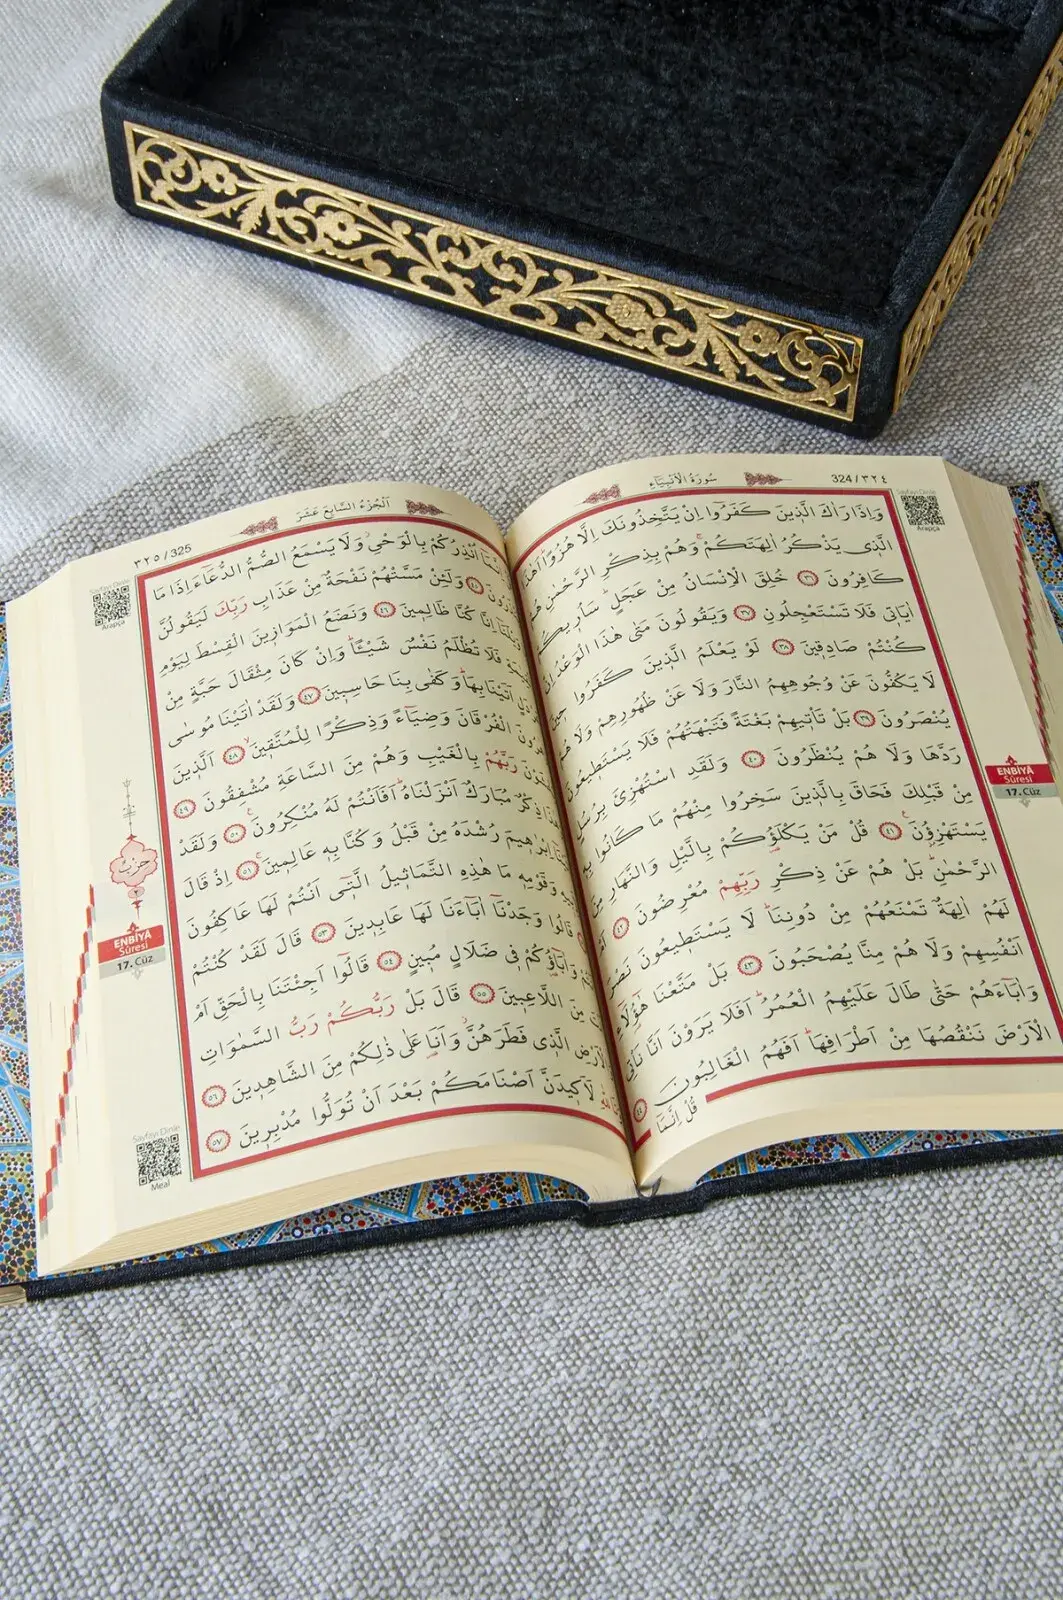 سُورَةُ الْاَنْبِيَاءِ
324/٣٢٤
Sayfayı Dinle
Arapça
وَاِذَا رَاٰكَ الَّذٖينَ كَفَرُٓوا اِنْ يَتَّخِذُونَكَ اِلَّا هُزُوًاۜ اَهٰذَا
الَّذٖي يَذْكُرُ اٰلِهَتَكُمْۚ وَهُمْ بِذِكْرِ الرَّحْمٰنِ
كَافِرُونَ ٣٦ خُلِقَ الْاِنْسَانُ مِنْ عَجَلٍۜ سَاُرٖيكُمْ
اٰيَاتٖي فَلَا تَسْتَعْجِلُونِ ٣٧ وَيَقُولُونَ مَتٰى هٰذَا الْوَعْدُ اِنْ
كُنْتُمْ صَادِقٖينَ ٣٨ لَوْ يَعْلَمُ الَّذٖينَ كَفَرُوا حٖينَ
لَا يَكُفُّونَ عَنْ وُجُوهِهِمُ النَّارَ وَلَا عَنْ ظُهُورِهِمْ وَلَا هُمْ
يُنْصَرُونَ ٣٩ بَلْ تَأْتٖيهِمْ بَغْتَةً فَتَبْهَتُهُمْ فَلَا يَسْتَطٖيعُونَ
رَدَّهَا وَلَا هُمْ يُنْظَرُونَ ٤٠ وَلَقَدِ اسْتُهْزِئَ بِرُسُلٍ
مِنْ قَبْلِكَ فَحَاقَ بِالَّذٖينَ سَخِرُوا مِنْهُمْ مَا كَانُوا بِهٖ
يَسْتَهْزِؤُنَ ٤١ قُلْ مَنْ يَكْلَؤُكُمْ بِالَّيْلِ وَالنَّهَارِ مِنَ
الرَّحْمٰنِۜ بَلْ هُمْ عَنْ ذِكْرِ رَبِّهِمْ مُعْرِضُونَ ٤٢ اَمْ
لَهُمْ اٰلِهَةٌ تَمْنَعُهُمْ مِنْ دُونِنَاۜ لَا يَسْتَطٖيعُونَ نَصْرَ
اَنْفُسِهِمْ وَلَا هُمْ مِنَّا يُصْحَبُونَ ٤٣ بَلْ مَتَّعْنَا هٰٓؤُلَٓاءِ
وَاٰبَٓاءَهُمْ حَتّٰى طَالَ عَلَيْهِمُ الْعُمُرُۜ اَفَلَا يَرَوْنَ اَنَّا نَأْتِي
الْاَرْضَ نَنْقُصُهَا مِنْ اَطْرَافِهَاۜ اَفَهُمُ الْغَالِبُونَ ٤٤
قُلْ اِنَّمَٓا
ENBİYÂ
Sûresi
17. Cüz
اَلْجُزْءُ السَّابِعَ عَشَرَ
٣٢٥/325
Sayfayı Dinle
Arapça
اُنْذِرُكُمْ بِالْوَحْيِۘ وَلَا يَسْمَعُ الصُّمُّ الدُّعَٓاءَ اِذَا مَا
٤٥ وَلَئِنْ مَسَّتْهُمْ نَفْحَةٌ مِنْ عَذَابِ رَبِّكَ لَيَقُولُنَّ
اِنَّا كُنَّا ظَالِمٖينَ ٤٦ وَنَضَعُ الْمَوَازٖينَ الْقِسْطَ لِيَوْمِ
فَلَا تُظْلَمُ نَفْسٌ شَيْـًٔاۜ وَاِنْ كَانَ مِثْقَالَ حَبَّةٍ مِنْ
اَتَيْنَا بِهَاۜ وَكَفٰى بِنَا حَاسِبٖينَ ٤٧ وَلَقَدْ اٰتَيْنَا مُوسٰى
الْفُرْقَانَ وَضِيَٓاءً وَذِكْرًا لِلْمُتَّقٖينَۙ ٤٨ اَلَّذٖينَ
رَبَّهُمْ بِالْغَيْبِ وَهُمْ مِنَ السَّاعَةِ مُشْفِقُونَ ٤٩
ذِكْرٌ مُبَارَكٌ اَنْزَلْنَاهُۜ اَفَاَنْتُمْ لَهُ مُنْكِرُونَ ٥٠ وَلَقَدْ
اِبْرٰهٖيمَ رُشْدَهُ مِنْ قَبْلُ وَكُنَّا بِهٖ عَالِمٖينَ ٥١ اِذْ قَالَ
وَقَوْمِهٖ مَا هٰذِهِ التَّمَاثٖيلُ الَّتٖٓي اَنْتُمْ لَهَا عَاكِفُونَ
قَالُوا وَجَدْنَٓا اٰبَٓاءَنَا لَهَا عَابِدٖينَ ٥٣ قَالَ لَقَدْ كُنْتُمْ
وَاٰبَٓاؤُ۬كُمْ فٖي ضَلَالٍ مُبٖينٍ ٥٤ قَالُٓوا اَجِئْتَنَا بِالْحَقِّ اَمْ
مِنَ اللَّاعِبٖينَ ٥٥ قَالَ بَلْ رَبُّكُمْ رَبُّ السَّمٰوَاتِ
الَّذٖي فَطَرَهُنَّۘ وَاَنَا۬ عَلٰى ذٰلِكُمْ مِنَ الشَّاهِدٖينَ ٥٦
لَاَكٖيدَنَّ اَصْنَامَكُمْ بَعْدَ اَنْ تُوَلُّوا مُدْبِرٖينَ ٥٧
حزب
ENBİYÂ
Sûresi
17. Cüz
Sayfayı Dinle
Meal